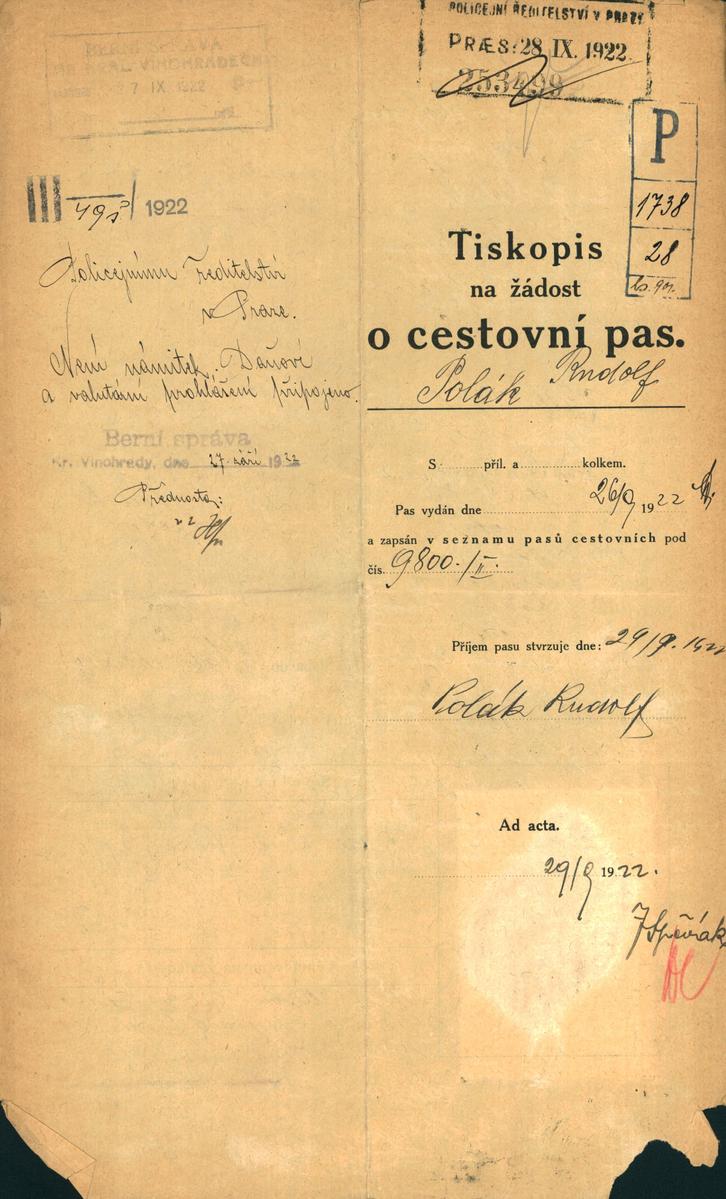 BERNÍ SPRÁVA
27 IX. 1922
III 495/1922
Policejnímu ředitelství
v Praze.
Není námitek. Daňové
a valutární prohlášení připojeno.
Berní správa
Kr. Vinohrady, dne 27. září 1922
Přednosta:
POLICEJNÍ ŘEDITELSTVÍ V PRAZE
PRÆS: 28. IX. 1922.
253499
P
1738
28
Tiskopis
na žádost
o cestovní pas.
Polák Rudolf
S ......... příl. a ............ kolkem.
Pas vydán dne 26/9 1922
a zapsán v seznamu pasů cestovních pod
čís. 9800./II.
Příjem pasu stvrzuje dne: 29/9. 1922
Polák Rudolf
Ad acta.
29/9 1922.